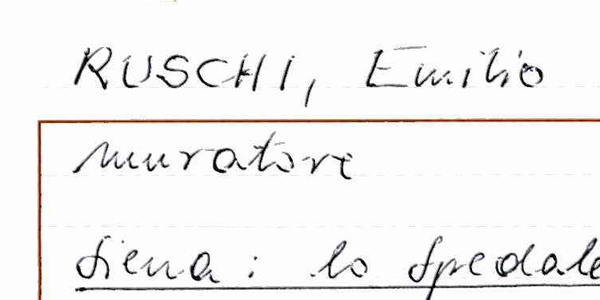 RUSCHI, Emilio
muratore
Siena : lo Spedale